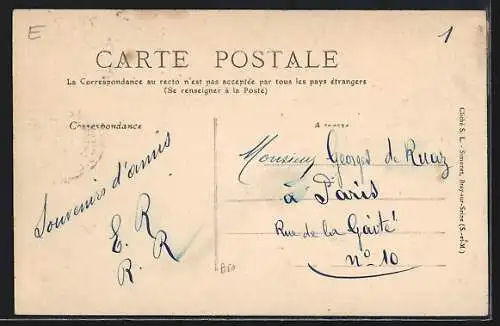 E
1
CARTE POSTALE
La Correspondance au recto n'est pas acceptée par tous les pays étrangers
(Se renseigner à la Poste)
Correspondance
Souvenirs d'amis
E. R
R. R
Monsieur Georges de Ruaz
à Paris
Rue de la Gaité
n° 10
Cliché S. L. - Simonet, Bray-sur-Seine (S.-et-M.)